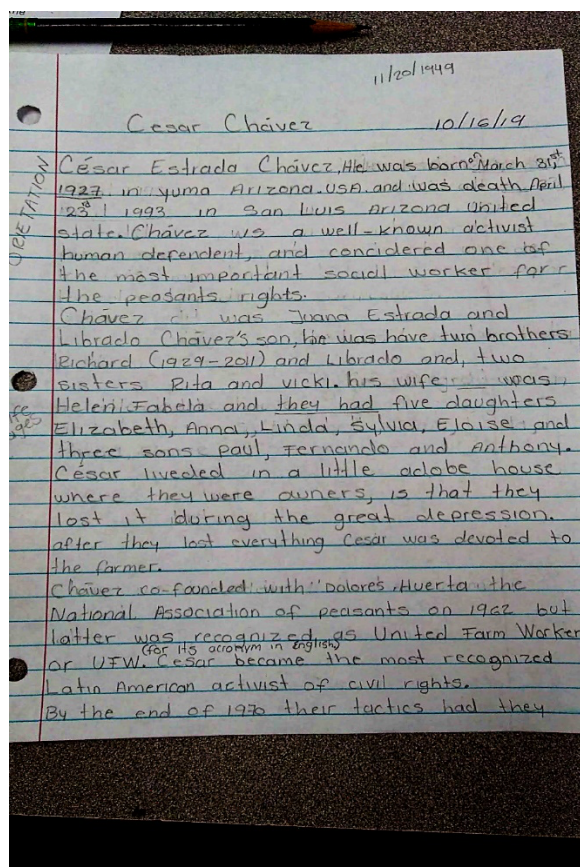 11/20/1949
Cesar Chávez 10/16/19
ORIETATION
César Estrada Chávez, He was born March 31,st
1927 in yuma Arizona.USA. and was death April
23rd 1993 in San Luis Arizona United
state. Chávez ws a well-known activist
human defendent, and concidered one of
the most important sociall worker for
the peasants rights.
Chávez was Juana Estrada and
Librado Chávez's son, he was have two brothers
Richard (1929-2011) and Librado and, two
sisters Rita and vicki. his wife was
Helen Fabela and they had five daughters
Elizabeth, Anna, Linda, Sylvia, Eloise and
three sons Paul, Fernando and Anthony.
César liveded in a little adobe house
where they were owners, is that they
lost it during the great depression.
after they lost everything Cesar was devoted to
the farmer.
Chávez co-founded with Dolores Huerta the
National Association of peasants on 1962 but
latter was recognized as United Farm Worker
(for its acronym in English)
or UFW. Cesar became the most recognized
Latin American activist of civil rights.
By the end of 1970 their tactics had they